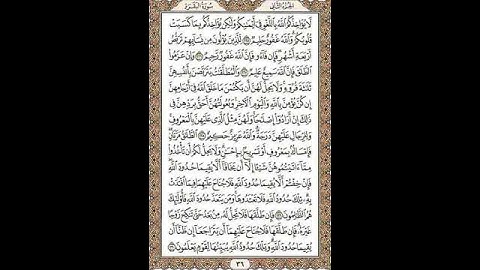 الجزء الثاني سورة البقرة
لَّا يُؤَاخِذُكُمُ ٱللَّهُ بِٱللَّغْوِ فِىٓ أَيْمَٰنِكُمْ وَلَٰكِن يُؤَاخِذُكُم بِمَا كَسَبَتْ
قُلُوبُكُمْ وَٱللَّهُ غَفُورٌ حَلِيمٌ ۝٢٢٥ لِّلَّذِينَ يُؤْلُونَ مِن نِّسَآئِهِمْ تَرَبُّصُ
أَرْبَعَةِ أَشْهُرٍ فَإِن فَآءُو فَإِنَّ ٱللَّهَ غَفُورٌ رَّحِيمٌ ۝٢٢٦ وَإِنْ عَزَمُوا۟
ٱلطَّلَٰقَ فَإِنَّ ٱللَّهَ سَمِيعٌ عَلِيمٌ ۝٢٢٧ وَٱلْمُطَلَّقَٰتُ يَتَرَبَّصْنَ بِأَنفُسِهِنَّ
ثَلَٰثَةَ قُرُوٓءٍ وَلَا يَحِلُّ لَهُنَّ أَن يَكْتُمْنَ مَا خَلَقَ ٱللَّهُ فِىٓ أَرْحَامِهِنَّ
إِن كُنَّ يُؤْمِنَّ بِٱللَّهِ وَٱلْيَوْمِ ٱلْءَاخِرِ وَبُعُولَتُهُنَّ أَحَقُّ بِرَدِّهِنَّ فِى
ذَٰلِكَ إِنْ أَرَادُوٓا۟ إِصْلَٰحًا وَلَهُنَّ مِثْلُ ٱلَّذِى عَلَيْهِنَّ بِٱلْمَعْرُوفِ
وَلِلرِّجَالِ عَلَيْهِنَّ دَرَجَةٌ وَٱللَّهُ عَزِيزٌ حَكِيمٌ ۝٢٢٨ ٱلطَّلَٰقُ مَرَّتَانِ
فَإِمْسَاكٌۢ بِمَعْرُوفٍ أَوْ تَسْرِيحٌۢ بِإِحْسَٰنٍ وَلَا يَحِلُّ لَكُمْ أَن تَأْخُذُوا۟
مِمَّآ ءَاتَيْتُمُوهُنَّ شَيْـًٔا إِلَّآ أَن يَخَافَآ أَلَّا يُقِيمَا حُدُودَ ٱللَّهِ
فَإِنْ خِفْتُمْ أَلَّا يُقِيمَا حُدُودَ ٱللَّهِ فَلَا جُنَاحَ عَلَيْهِمَا فِيمَا ٱفْتَدَتْ
بِهِۦ تِلْكَ حُدُودُ ٱللَّهِ فَلَا تَعْتَدُوهَا وَمَن يَتَعَدَّ حُدُودَ ٱللَّهِ فَأُو۟لَٰٓئِكَ
هُمُ ٱلظَّٰلِمُونَ ۝٢٢٩ فَإِن طَلَّقَهَا فَلَا تَحِلُّ لَهُۥ مِنۢ بَعْدُ حَتَّىٰ تَنكِحَ زَوْجًا
غَيْرَهُۥ فَإِن طَلَّقَهَا فَلَا جُنَاحَ عَلَيْهِمَآ أَن يَتَرَاجَعَآ إِن ظَنَّآ أَن
يُقِيمَا حُدُودَ ٱللَّهِ وَتِلْكَ حُدُودُ ٱللَّهِ يُبَيِّنُهَا لِقَوْمٍ يَعْلَمُونَ ۝٢٣٠
٣٦